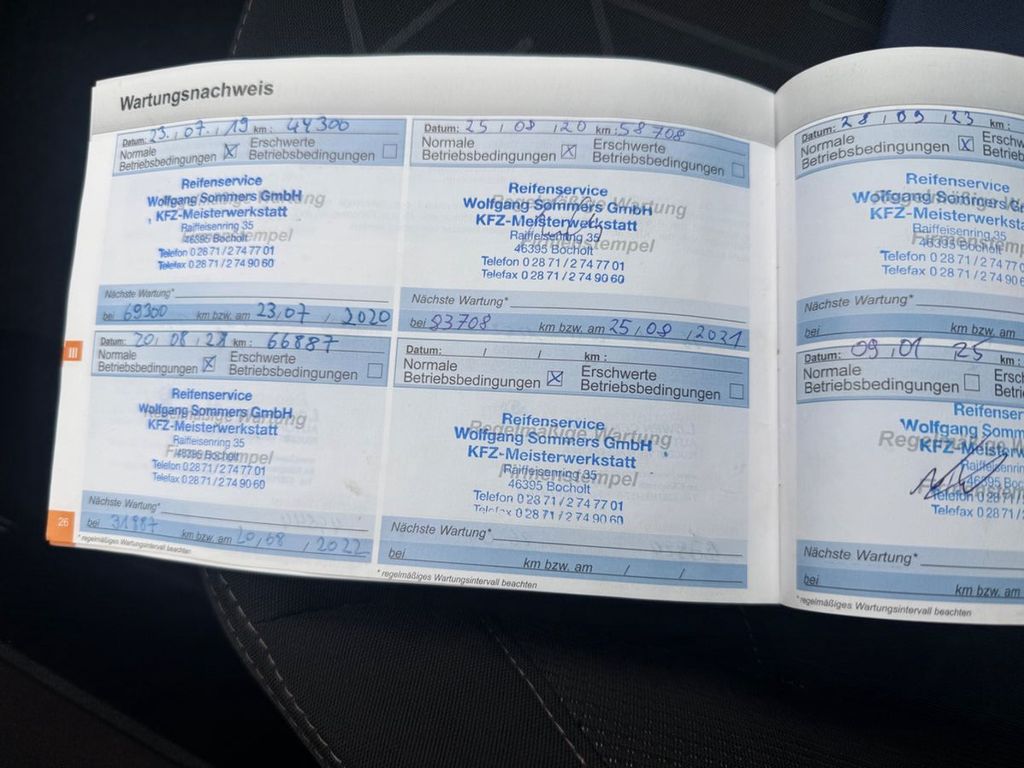 Wartungsnachweis
Datum: 23 , 07 , 19 km : 44300
Normale Betriebsbedingungen X Erschwerte Betriebsbedingungen
Reifenservice
Wolfgang Sommers GmbH
KFZ-Meisterwerkstatt
Raiffeisenring 35
46395 Bocholt
Telefon 0 28 71 / 2 74 77 01
Telefax 0 28 71 / 2 74 90 60
Nächste Wartung*
bei 69300 km bzw. am 23,07 , 2020
Datum: 20, 08 , 21 km : 66887
Normale Betriebsbedingungen X Erschwerte Betriebsbedingungen
Regelmäßige Wartung
Firmenstempel
Reifenservice
Wolfgang Sommers GmbH
KFZ-Meisterwerkstatt
Raiffeisenring 35
46395 Bocholt
Telefon 0 28 71 / 2 74 77 01
Telefax 0 28 71 / 2 74 90 60
Nächste Wartung*
bei 31887 km bzw. am 20,08 , 2022
* regelmäßiges Wartungsintervall beachten
III
26
Datum: 25 , 08 , 20 km : 58708
Normale Betriebsbedingungen X Erschwerte Betriebsbedingungen
Regelmäßige Wartung
Firmenstempel
Reifenservice
Wolfgang Sommers GmbH
KFZ-Meisterwerkstatt
Raiffeisenring 35
46395 Bocholt
Telefon 0 28 71 / 2 74 77 01
Telefax 0 28 71 / 2 74 90 60
Nächste Wartung*
bei 83708 km bzw. am 25,08 , 2021
Datum: / / km :
Normale Betriebsbedingungen X Erschwerte Betriebsbedingungen
Regelmäßige Wartung
Firmenstempel
Reifenservice
Wolfgang Sommers GmbH
KFZ-Meisterwerkstatt
Raiffeisenring 35
46395 Bocholt
Telefon 0 28 71 / 2 74 77 01
Telefax 0 28 71 / 2 74 90 60
Nächste Wartung*
bei km bzw. am / /
* regelmäßiges Wartungsintervall beachten
Datum: 28 , 09 , 23 km :
Normale Betriebsbedingungen X
Firmenstempel
Reifenservice
Wolfgang Sommers
KFZ-Meisterwerkst
Raiffeisenring 35
46395 Bocholt
Telefon 0 28 71 / 2 74 77 0
Telefax 0 28 71 / 2 74 90 6
Nächste Wartung*
bei km bzw. am
Datum: 09 , 01 25 km :
Normale Betriebsbedingungen
Regelmäßige
Firmenstempel
Wolfgang Somm
KFZ-Meisterwe
46395 Bo
Telefon 0 28 71
Telefax 0 28 71 /
Nächste Wartung*
bei km bzw. am
* regelmäßiges Wartungsintervall beachten